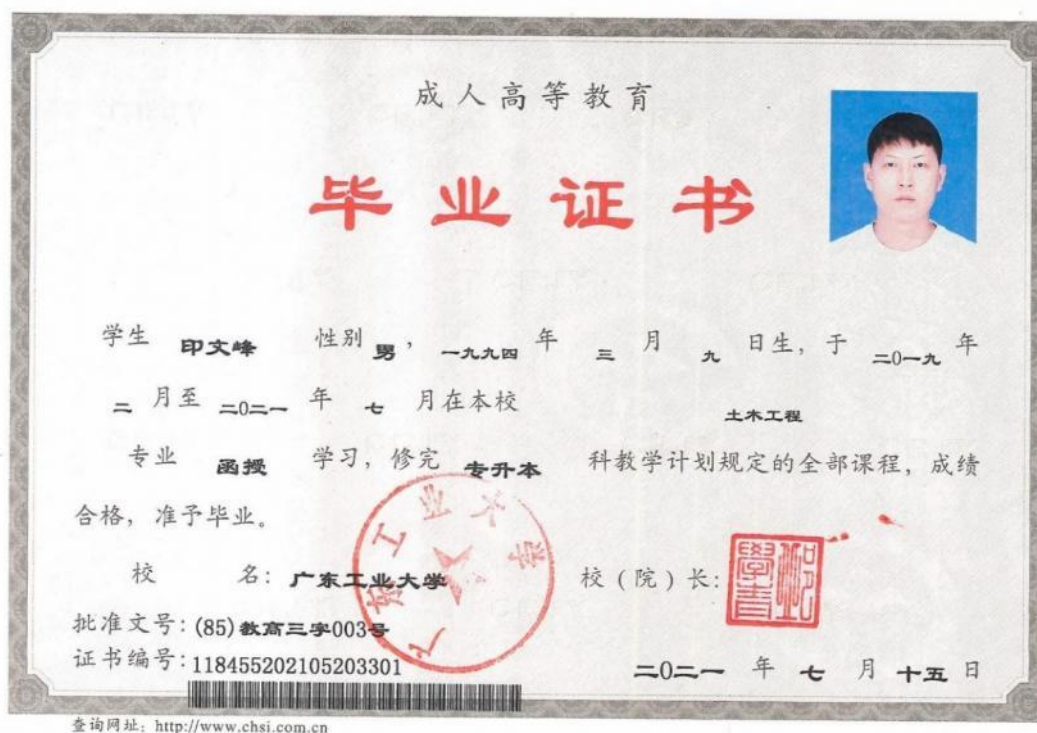 成人高等教育
毕业证书
学生 印文峰 性别 男, 一九九四 年 三 月 九 日生, 于 二0一九 年
二 月至 二0二一 年 七 月在本校 土木工程
专业 函授 学习, 修完 专升本 科教学计划规定的全部课程, 成绩
合格, 准予毕业。
校 名: 广东工业大学 校(院)长:
广东工业大学
批准文号: (85)教高三字003号
证书编号: 118455202105203301
二0二一 年 七 月 十五 日
查询网址: http://www.chsi.com.cn